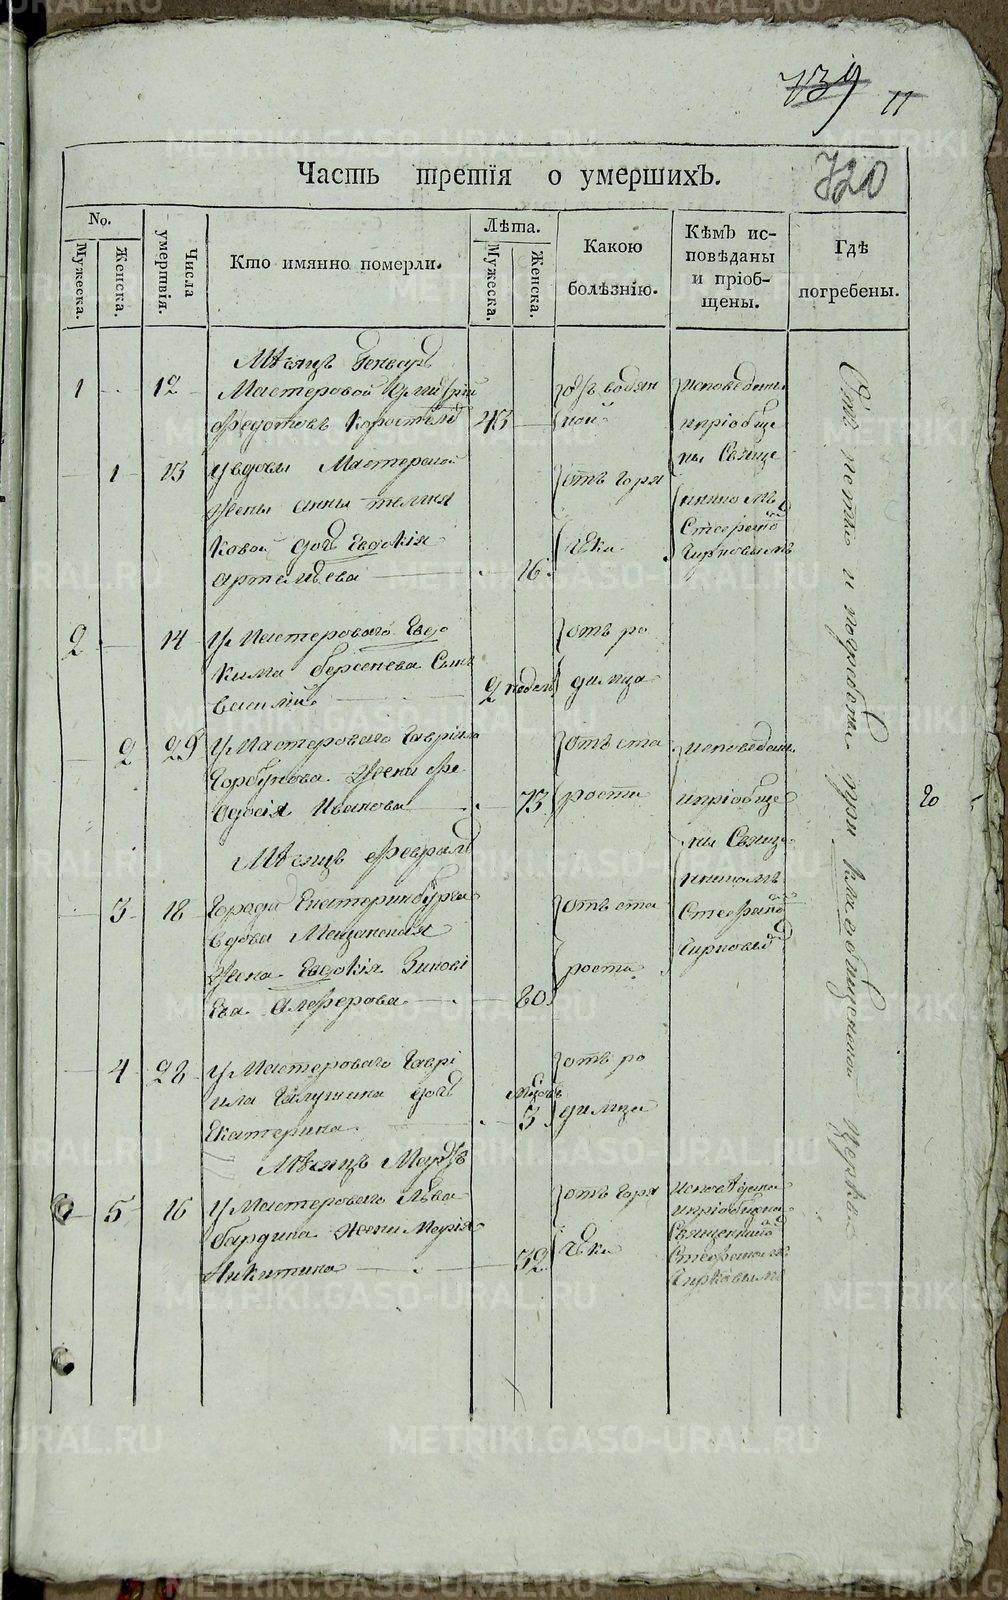 739 11
720
Часть третія о умершихъ.
No.
Мужеска.
Женска.
Числа умертвія.
Кто имянно померли.
Лѣта.
Мужеска.
Женска.
Какою болѣзнію.
Кѣмъ исповѣданы и пріобщены.
Гдѣ погребены.
Мѣсяцъ Генварь
1 12 Мастеровой
Федотовъ 43
отъ водян
ной
исповѣданы
и пріобще
ны Священ
1 13 У вдовы Мастерской
жены Анны
ковой дочь Евдокія
Артемьева 16
отъ горя
чки
2 14 У Мастероваго Евдо
кима Берсенева Сынъ
Василій 2 недель
отъ ро
димца
2 29 У Мастероваго Гаврила
Горбунова жена Фе
досія Иванова 73
отъ ста
рости
исповѣданы
и пріобще
ны Свяще
нникомъ
Стефаномъ
Мѣсяцъ Февраль
3 18 Города Екатеринбурга
вдова Мещанская
жена Евдокія Зиновь
ева Алферова 80
отъ ста
рости
4 28 У Мастероваго Гаври
ила дочь
Екатерина 3
отъ ро
димца
Мѣсяцъ Мартъ
5 16 У Мастероваго Льва
Бардина жена Марія
Никитина 32
отъ горя
чки
исповѣдана
и пріобщена
Священникомъ
Стефаномъ
и погребены при кладбищенской Церкви
METRIKI.GASO-URAL.RU